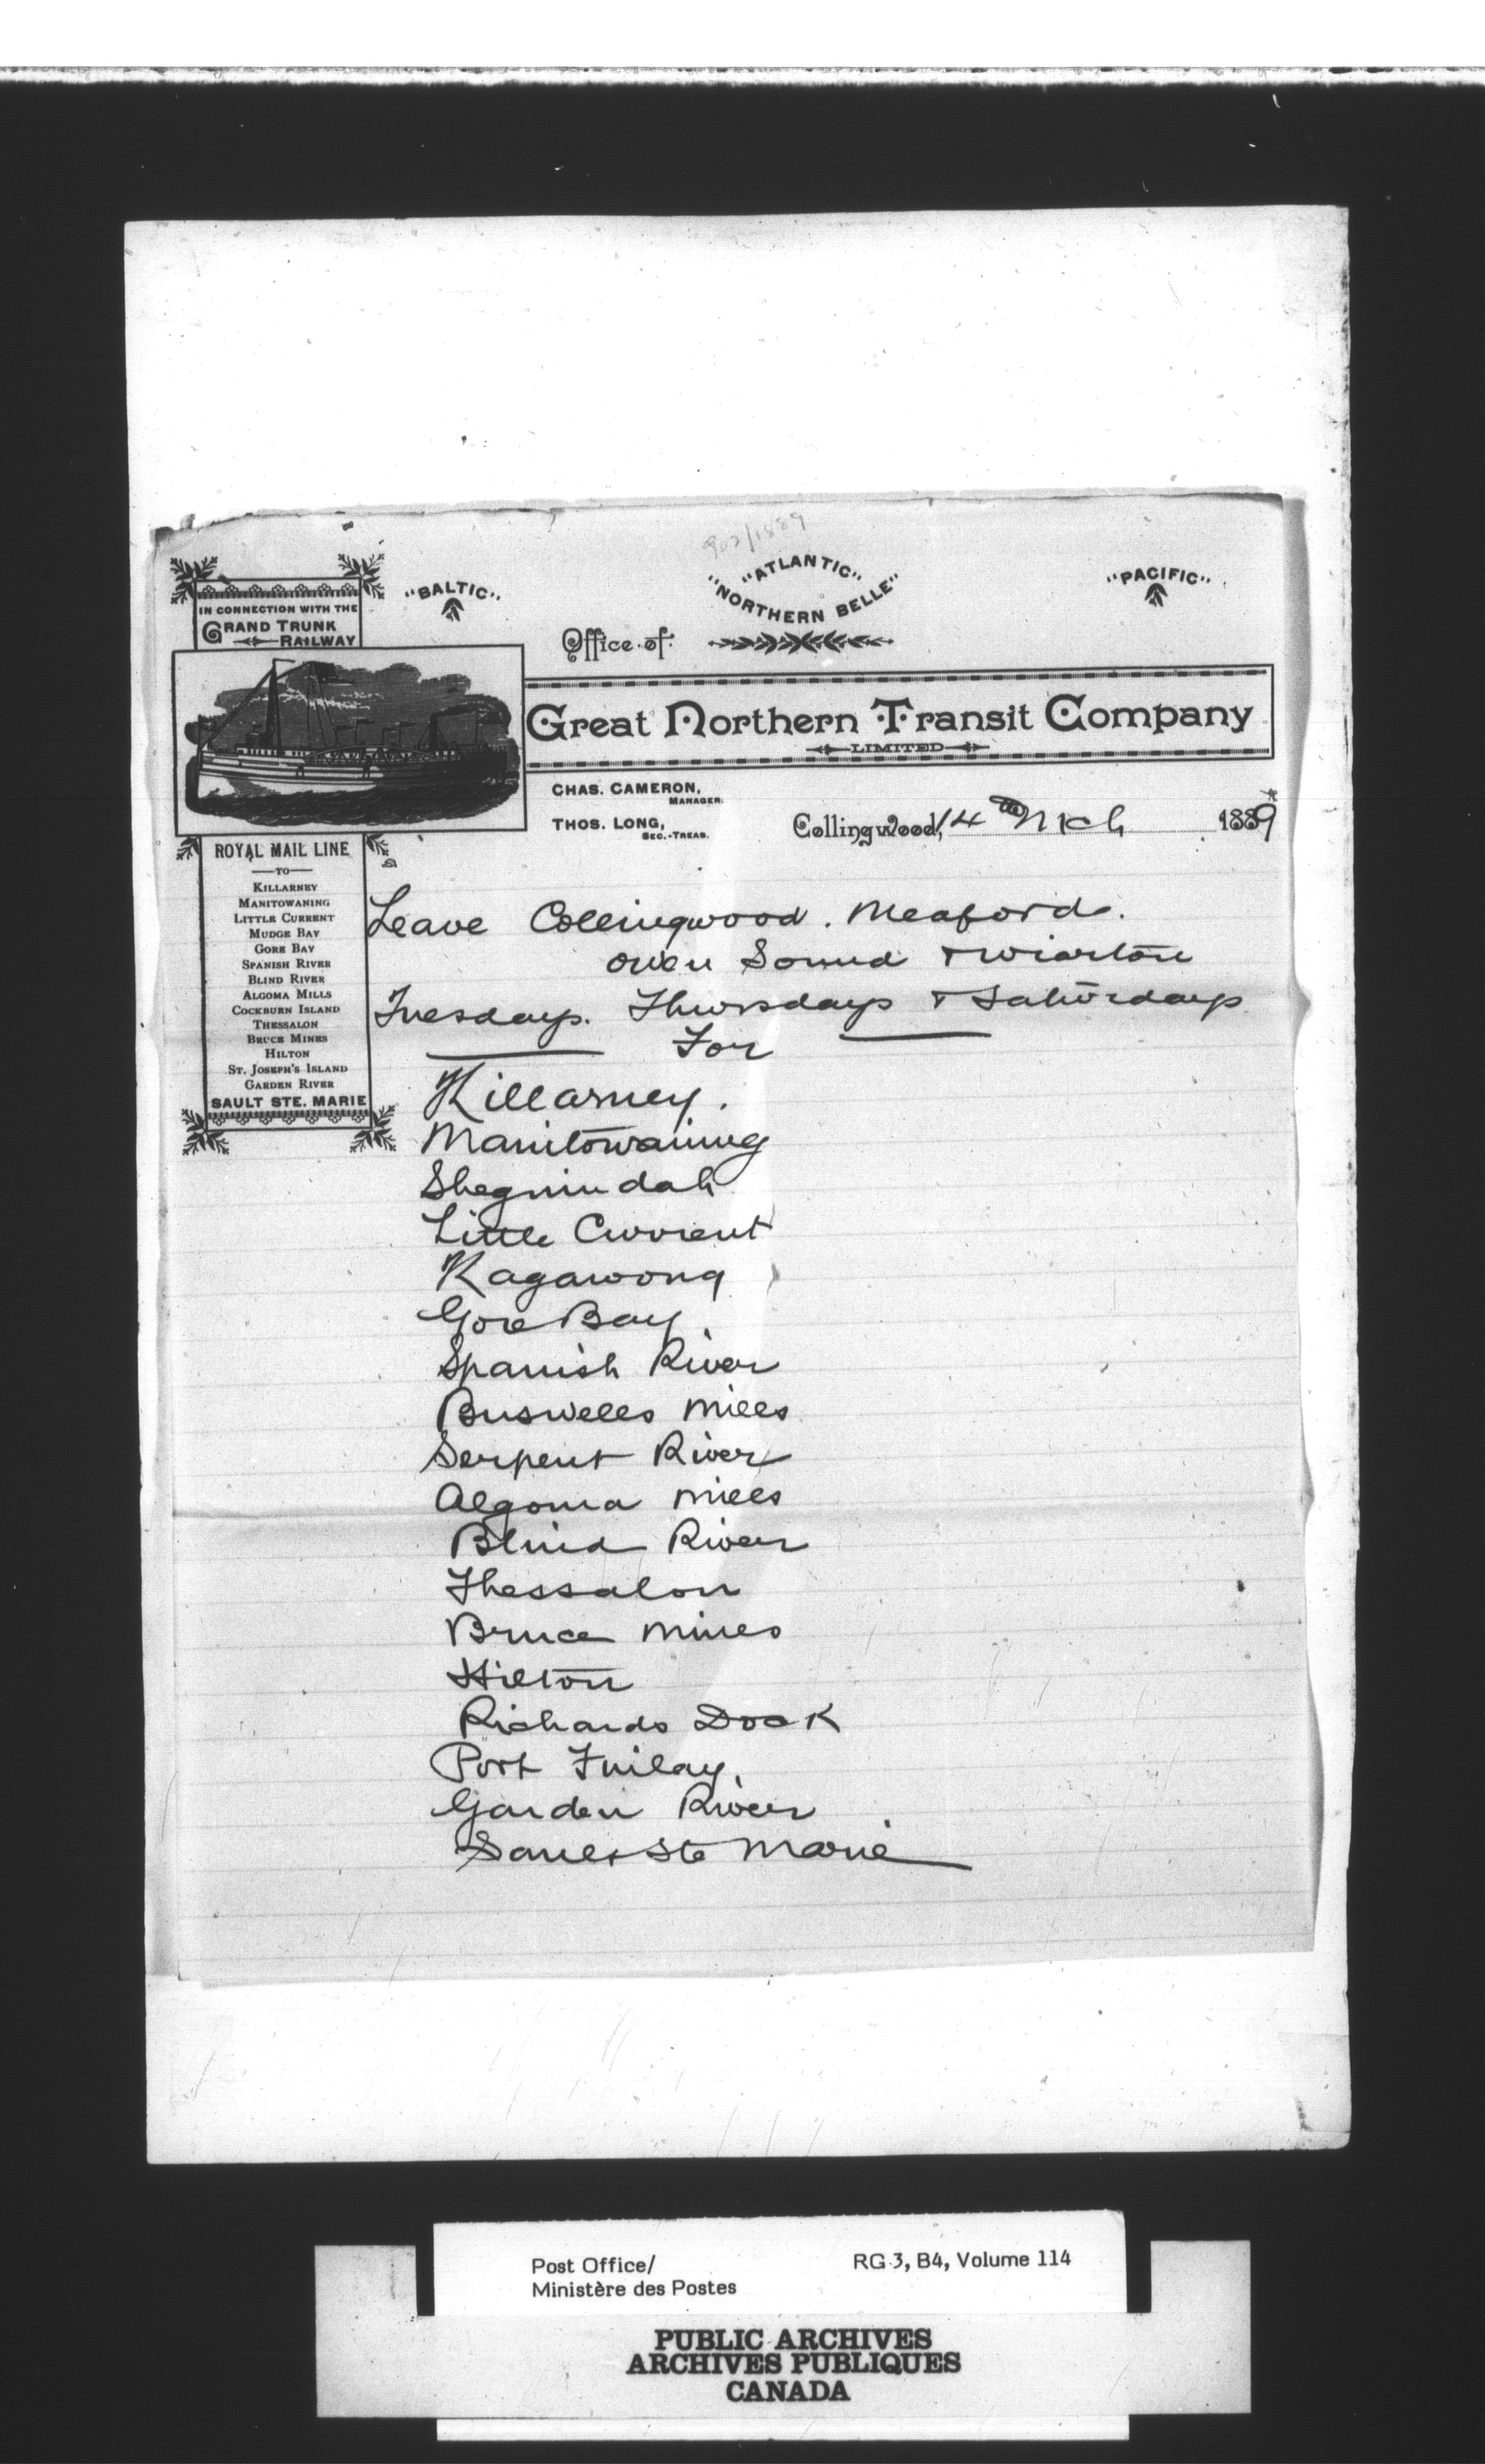 902/1889
IN CONNECTION WITH THE
GRAND TRUNK
RAILWAY
"BALTIC"
"ATLANTIC"
"NORTHERN BELLE"
"PACIFIC"
Office of
Great Northern Transit Company
LIMITED
CHAS. CAMERON,
MANAGER.
THOS. LONG,
SEC.-TREAS.
Collingwood, 14th Mch 1889
ROYAL MAIL LINE
TO
KILLARNEY
MANITOWANING
LITTLE CURRENT
MUDGE BAY
GORE BAY
SPANISH RIVER
BLIND RIVER
ALGOMA MILLS
COCKBURN ISLAND
THESSALON
BRUCE MINES
HILTON
ST. JOSEPH'S ISLAND
GARDEN RIVER
SAULT STE. MARIE
Leave Collingwood. Meaford.
Owen Sound & Wiarton
Tuesdays. Thursdays & Saturdays
For
Killarney.
Manitowaning
Sheguindah
Little Current
Kagawong
Gore Bay.
Spanish River
Buswells Mills
Serpent River
Algoma Mills
Blind River
Thessalon
Bruce Mines
Hilton
Richards Dock
Port Finlay.
Garden River
Sault Ste Marie
Post Office/
Ministère des Postes
RG 3, B4, Volume 114
PUBLIC ARCHIVES
ARCHIVES PUBLIQUES
CANADA